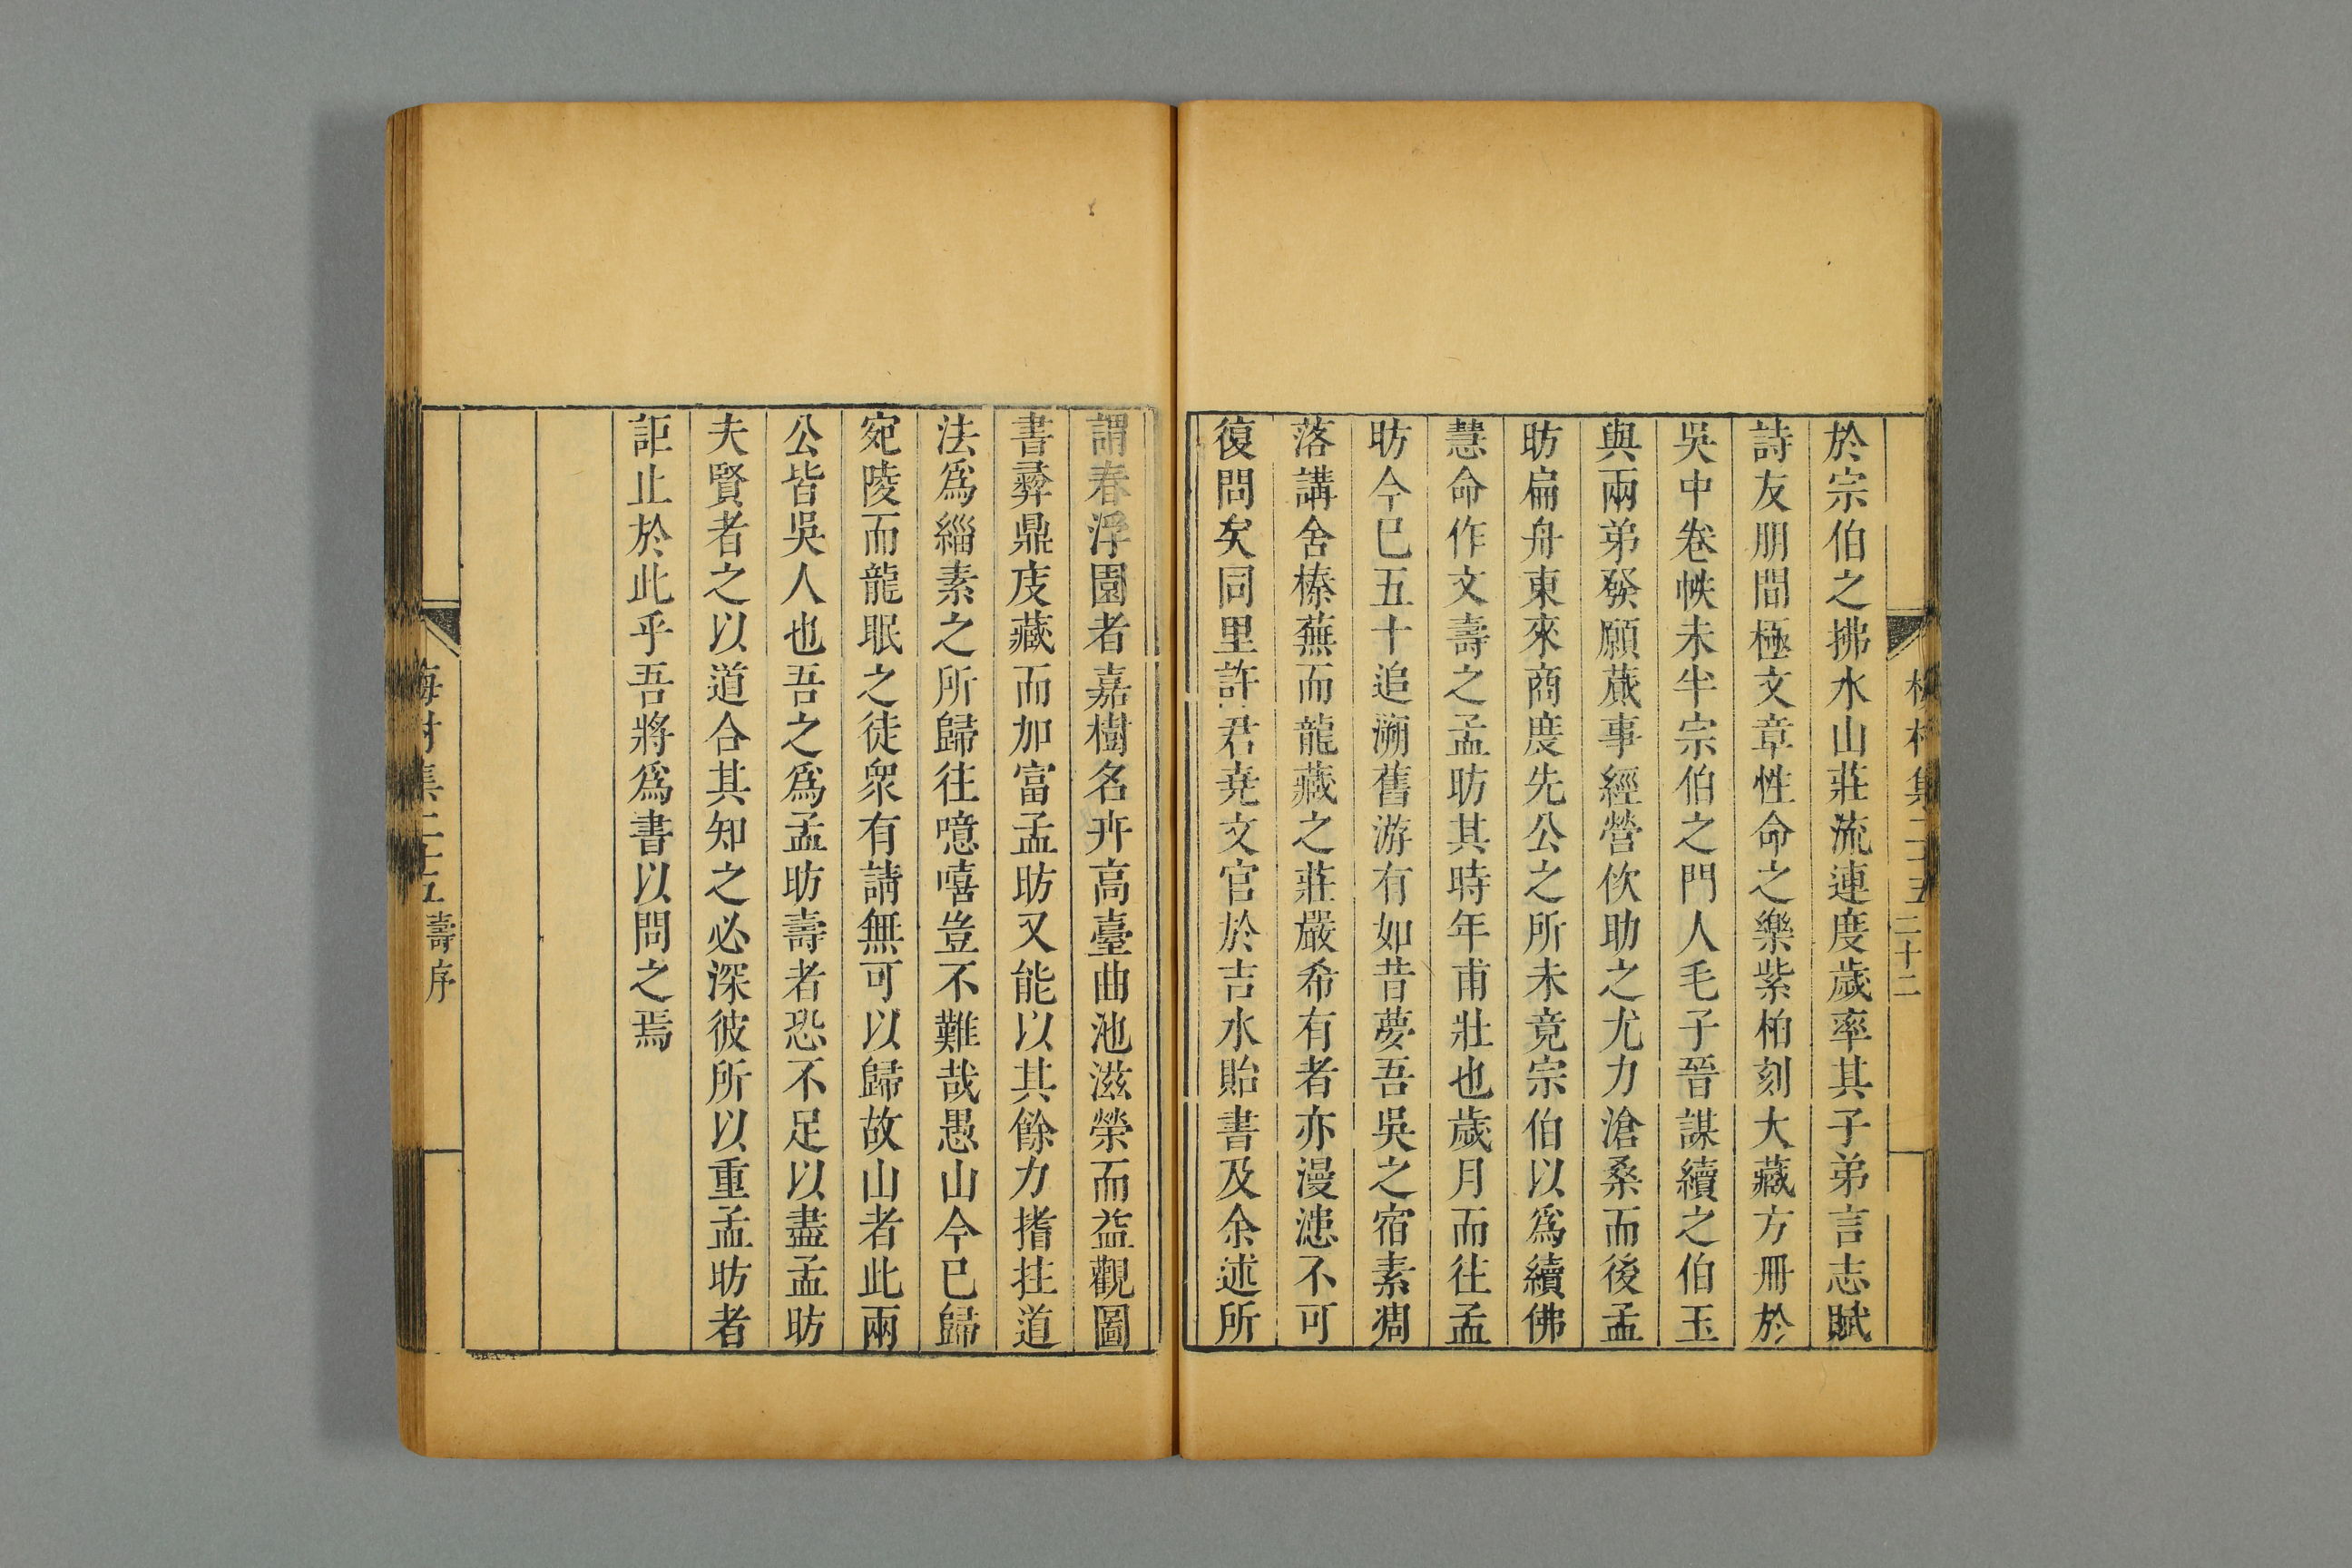 於宗伯之拂水山莊流連度歲率其子弟言志賦
詩友朋間極文章性命之樂紫柏刻大藏方冊於
吳中卷帙未半宗伯之門人毛子晉謀續之伯玉
與兩弟發願蕆事經營佽助之尤力滄桑而後孟
昉扁舟東來商度先公之所未竟宗伯以爲續佛
慧命作文壽之孟昉其時年甫壯也歲月而往孟
昉今已五十追溯舊游有如昔夢吾吳之宿素凋
落講舍榛蕪而龍藏之莊嚴希有者亦漫漶不可
復問矣同里許君堯文官於吉水貽書及余述所
謂春浮園者嘉樹名卉高臺曲池滋榮而益觀圖
書彞鼎庋藏而加富孟昉又能以其餘力搘拄道
法爲緇素之所歸往噫嘻豈不難哉愚山今已歸
宛陵而龍眠之徒衆有請無可以歸故山者此兩
公皆吳人也吾之爲孟昉壽者恐不足以盡孟昉
夫賢者之以道合其知之必深彼所以重孟昉者
詎止於此乎吾將爲書以問之焉
梅村集二十五
二十二
梅村集二十五 壽序